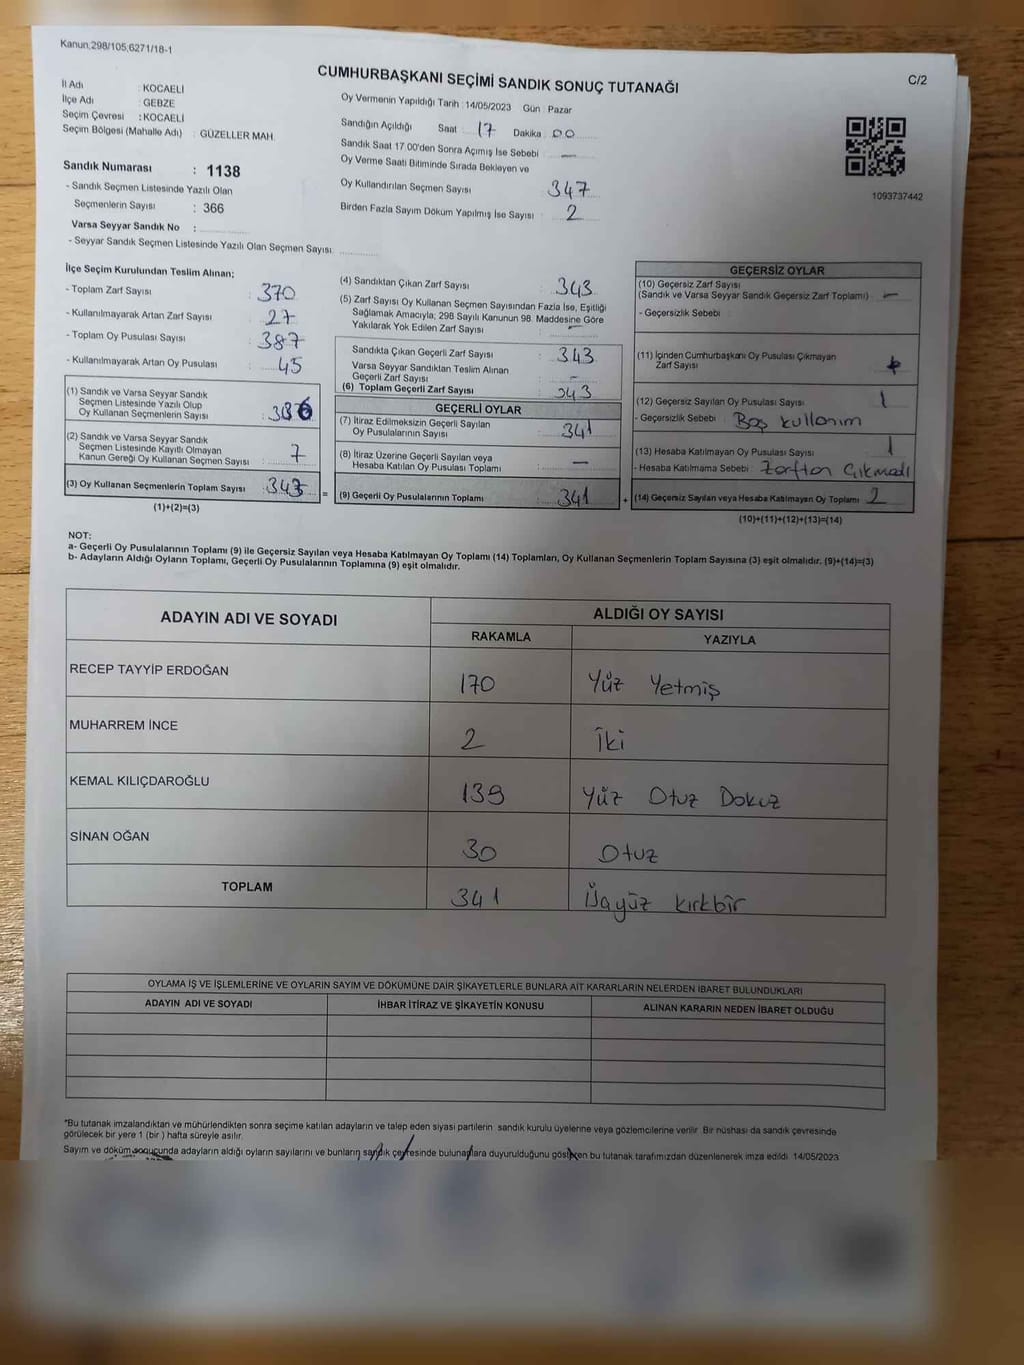 Kanun,298/105,6271/18-1
CUMHURBAŞKANI SEÇİMİ SANDIK SONUÇ TUTANAĞI
C/2
İl Adı : KOCAELİ
İlçe Adı : GEBZE
Seçim Çevresi : KOCAELİ
Seçim Bölgesi (Mahalle Adı) : GÜZELLER MAH.
Sandık Numarası : 1138
- Sandık Seçmen Listesinde Yazılı Olan
Seçmenlerin Sayısı : 366
Varsa Seyyar Sandık No :
- Seyyar Sandık Seçmen Listesinde Yazılı Olan Seçmen Sayısı:
Oy Vermenin Yapıldığı Tarih :14/05/2023 Gün : Pazar
Sandığın Açıldığı Saat 17 Dakika 00
Sandık Saat 17.00'den Sonra Açımış İse Sebebi : —
Oy Verme Saati Bitiminde Sırada Bekleyen ve
Oy Kullandırılan Seçmen Sayısı : 347
Birden Fazla Sayım Döküm Yapılmış İse Sayısı : 2
1093737442
İlçe Seçim Kurulundan Teslim Alınan;
- Toplam Zarf Sayısı : 370
- Kullanılmayarak Artan Zarf Sayısı : 27
- Toplam Oy Pusulası Sayısı : 387
- Kullanılmayarak Artan Oy Pusulası : 45
(1) Sandık ve Varsa Seyyar Sandık
Seçmen Listesinde Yazılı Olup
Oy Kullanan Seçmenlerin Sayısı : 336
(2) Sandık ve Varsa Seyyar Sandık
Seçmen Listesinde Kayıtlı Olmayan
Kanun Gereği Oy Kullanan Seçmen Sayısı : 7
(3) Oy Kullanan Seçmenlerin Toplam Sayısı : 343
(1)+(2)=(3)
=
(4) Sandıktan Çıkan Zarf Sayısı : 343
(5) Zarf Sayısı Oy Kullanan Seçmen Sayısından Fazla İse, Eşitliği
Sağlamak Amacıyla; 298 Sayılı Kanunun 98. Maddesine Göre
Yakılarak Yok Edilen Zarf Sayısı : —
Sandıkta Çıkan Geçerli Zarf Sayısı : 343
Varsa Seyyar Sandıktan Teslim Alınan
Geçerli Zarf Sayısı : —
(6) Toplam Geçerli Zarf Sayısı : 343
GEÇERLİ OYLAR
(7) İtiraz Edilmeksizin Geçerli Sayılan
Oy Pusulalarının Sayısı : 341
(8) İtiraz Üzerine Geçerli Sayılan veya
Hesaba Katılan Oy Pusulası Toplamı : —
(9) Geçerli Oy Pusulalarının Toplamı : 341
+
GEÇERSİZ OYLAR
(10) Geçersiz Zarf Sayısı
(Sandık ve Varsa Seyyar Sandık Geçersiz Zarf Toplamı) : —
- Geçersizlik Sebebi :
(11) İçinden Cumhurbaşkanı Oy Pusulası Çıkmayan
Zarf Sayısı :
(12) Geçersiz Sayılan Oy Pusulası Sayısı : 1
- Geçersizlik Sebebi : Boş kullanım
(13) Hesaba Katılmayan Oy Sayısı : 1
- Hesaba Katılmama Sebebi : Zarftan Çıkmadı
(14) Geçersiz Sayılan veya Hesaba Katılmayan Oy Toplamı : 2
(10)+(11)+(12)+(13)=(14)
NOT:
a- Geçerli Oy Pusulalarının Toplamı (9) ile Geçersiz Sayılan veya Hesaba Katılmayan Oy Toplamı (14) Toplamları, Oy Kullanan Seçmenlerin Toplam Sayısına (3) eşit olmalıdır. (9)+(14)=(3)
b- Adayların Aldığı Oyların Toplamı, Geçerli Oy Pusulalarının Toplamına (9) eşit olmalıdır.
ADAYIN ADI VE SOYADI ALDIĞI OY SAYISI
RAKAMLA YAZIYLA
RECEP TAYYİP ERDOĞAN 170 Yüz Yetmiş
MUHARREM İNCE 2 İki
KEMAL KILIÇDAROĞLU 139 Yüz Otuz Dokuz
SİNAN OĞAN 30 Otuz
TOPLAM 341 Üçyüz kırkbir
OYLAMA İŞ VE İŞLEMLERİNE VE OYLARIN SAYIM VE DÖKÜMÜNE DAİR ŞİKAYETLERLE BUNLARA AİT KARARLARIN NELERDEN İBARET BULUNDUKLARI
ADAYIN ADI VE SOYADI İHBAR İTİRAZ VE ŞİKAYETİN KONUSU ALINAN KARARIN NEDEN İBARET OLDUĞU
*Bu tutanak imzalandıktan ve mühürlendikten sonra seçime katılan adayların ve talep eden siyasi partilerin sandık kurulu üyelerine veya gözlemcilerine verilir. Bir nüshası da sandık çevresinde
görülecek bir yere 1 (bir) hafta süreyle asılır.
Sayım ve döküm sonucunda adayların aldığı oyların sayılarını ve bunların sandık çevresinde bulunanlara duyurulduğunu gösteren bu tutanak tarafımızdan düzenlenerek imza edildi. 14/05/2023